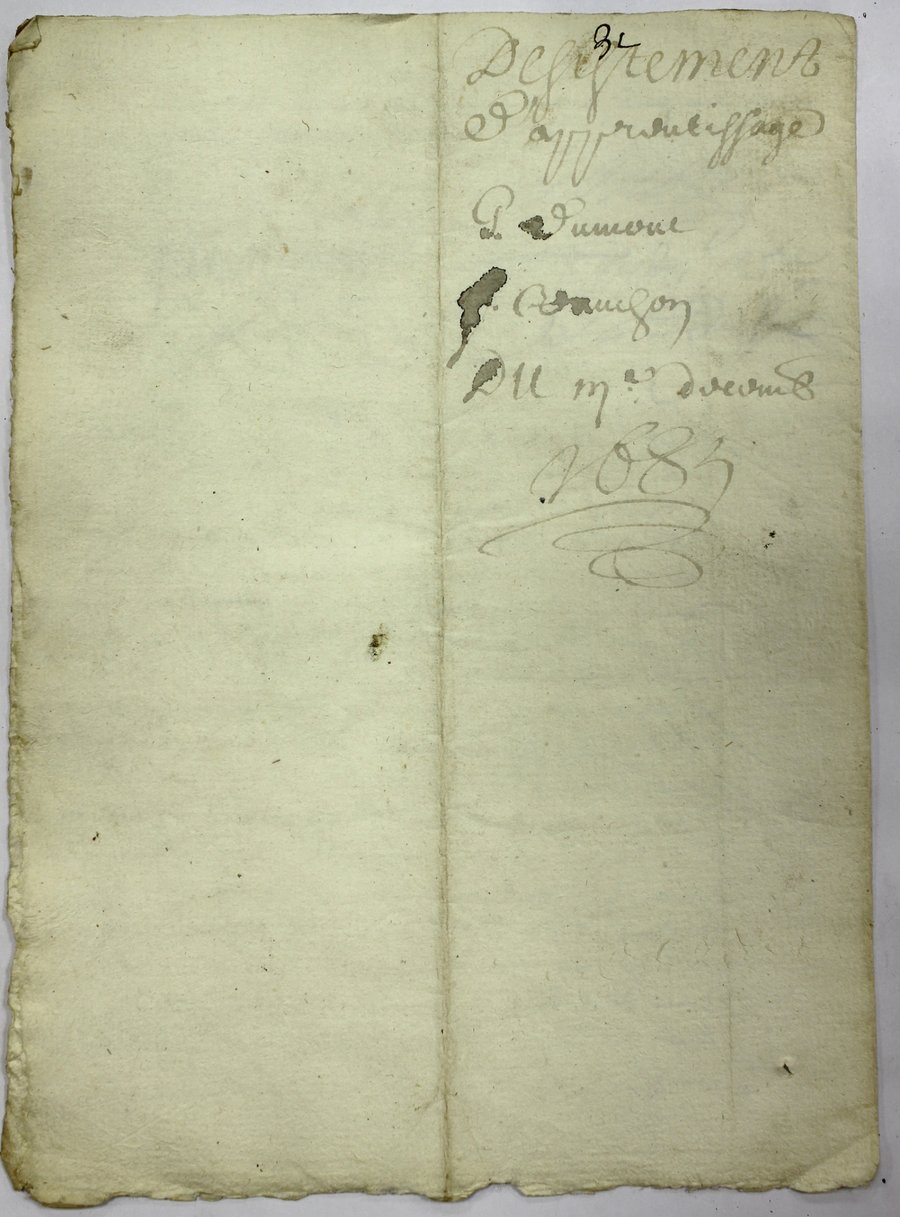 31
Desistement
d'apprentissage
G. dumont
Du m.e decemb
1685